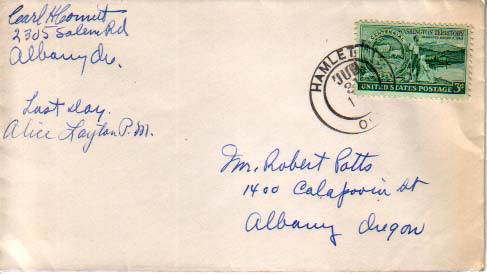 Carl H Cornutt
2305 Salem Rd
Albany Or.
Last day.
Alice Layton P.M.
HAMLET
JUN
O
CENTENNIAL
WASHINGTON TERRITORY
UNITED STATES POSTAGE 3¢
Mr. Robert Potts
1400 Calapooia St
Albany Oregon